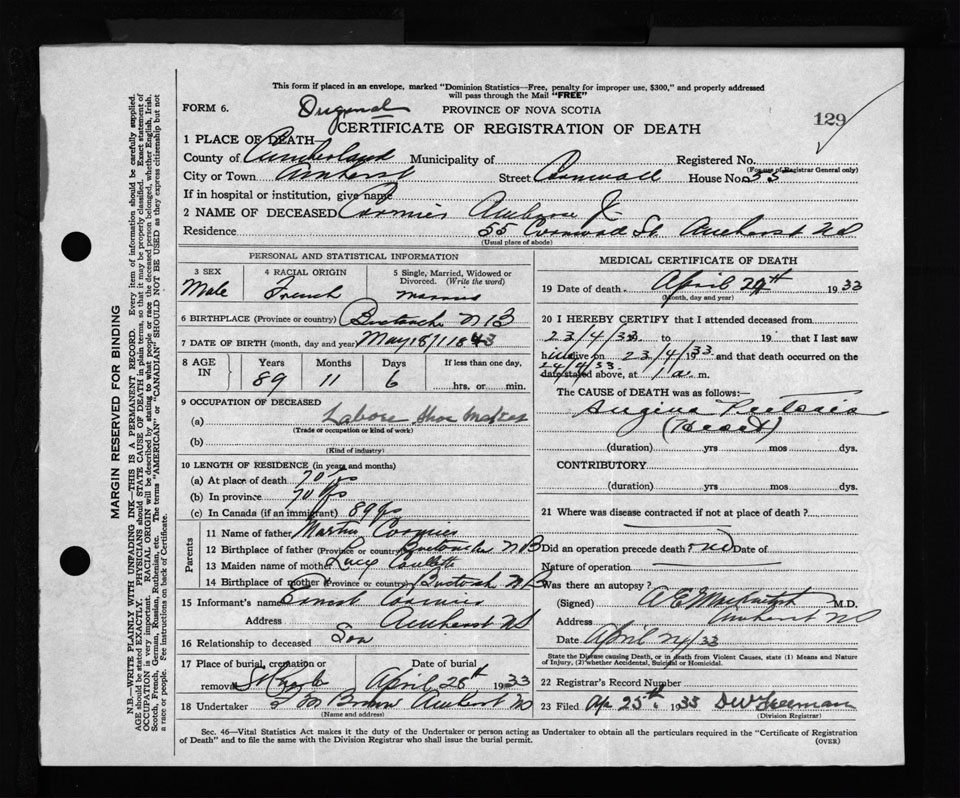 This form if placed in an envelope, marked "Dominion Statistics—Free, penalty for improper use, $300," and properly addressed
will pass through the Mail "FREE"
FORM 6. Original PROVINCE OF NOVA SCOTIA
CERTIFICATE OF REGISTRATION OF DEATH 129
1 PLACE OF DEATH—
County of Cumberland Municipality of Registered No.
(For use of Registrar General only)
City or Town Amherst Street Cornwall House No. 55
If in hospital or institution, give name
2 NAME OF DECEASED Cormier Ambrose
Residence 55 Cornwall St. Amherst NS
(Usual place of abode)
PERSONAL AND STATISTICAL INFORMATION
3 SEX 4 RACIAL ORIGIN 5 Single, Married, Widowed or Divorced. (Write the word)
Male French
6 BIRTHPLACE (Province or country) Buctouche NB
7 DATE OF BIRTH (month, day and year) May 18/1843
8 AGE IN Years Months Days If less than one day,
89 11 6 hrs. or min.
9 OCCUPATION OF DECEASED
(a) Labore Shoe Maker
(Trade or occupation or kind of work)
(b)
(Kind of industry)
10 LENGTH OF RESIDENCE (in years and months)
(a) At place of death 70 yrs
(b) In province 70 yrs
(c) In Canada (if an immigrant) 89 yrs
Parents
11 Name of father Martin Cormier
12 Birthplace of father (Province or country) Buctouche NB
13 Maiden name of mother Lucy
14 Birthplace of mother (Province or country) Buctouch NB
15 Informant's name Ernest Cormier
Address Amherst NS
16 Relationship to deceased Son
17 Place of burial, cremation or removal Date of burial
April 25th 1933
18 Undertaker Brown Amherst NS
(Name and address)
MEDICAL CERTIFICATE OF DEATH
19 Date of death April 1933
(Month, day and year)
20 I HEREBY CERTIFY that I attended deceased from
23/4/33 to 19 that I last saw
h alive on 23/4/33 and that death occurred on the
24/4/33
date stated above, at 1 a. m.
The CAUSE OF DEATH was as follows:
Angina Pectoris
(Heart)
(duration) yrs mos dys.
CONTRIBUTORY
(duration) yrs mos dys.
21 Where was disease contracted if not at place of death?
Did an operation precede death no Date of
Nature of operation
Was there an autopsy?
(Signed) M.D.
Address Amherst NS
Date April 24/33
State the Disease causing Death, or in death from Violent Causes, state (1) Means and Nature
of Injury, (2) whether Accidental, Suicidal or Homicidal.
22 Registrar's Record Number
23 Filed Apr 25th 1933 DW Freeman
(Division Registrar)
Sec. 46—Vital Statistics Act makes it the duty of the Undertaker or person acting as Undertaker to obtain all the particulars required in the "Certificate of Registration
of Death" and to file the same with the Division Registrar who shall issue the burial permit. (OVER)
MARGIN RESERVED FOR BINDING
N.B.—WRITE PLAINLY WITH UNFADING INK—THIS IS A PERMANENT RECORD. Every item of information should be carefully supplied.
AGE should be stated EXACTLY. PHYSICIANS should STATE CAUSE OF DEATH in plain terms, so that it may be properly classified. Exact statement of
OCCUPATION is very important. RACIAL ORIGIN will be described by stating to what people or race the deceased person belonged, whether English, Irish,
Scotch, French, German, Russian, Ruthenian, etc. The terms "AMERICAN" or "CANADIAN" SHOULD NOT BE USED as they express citizenship but not
a race or people. See instructions on back of Certificate.